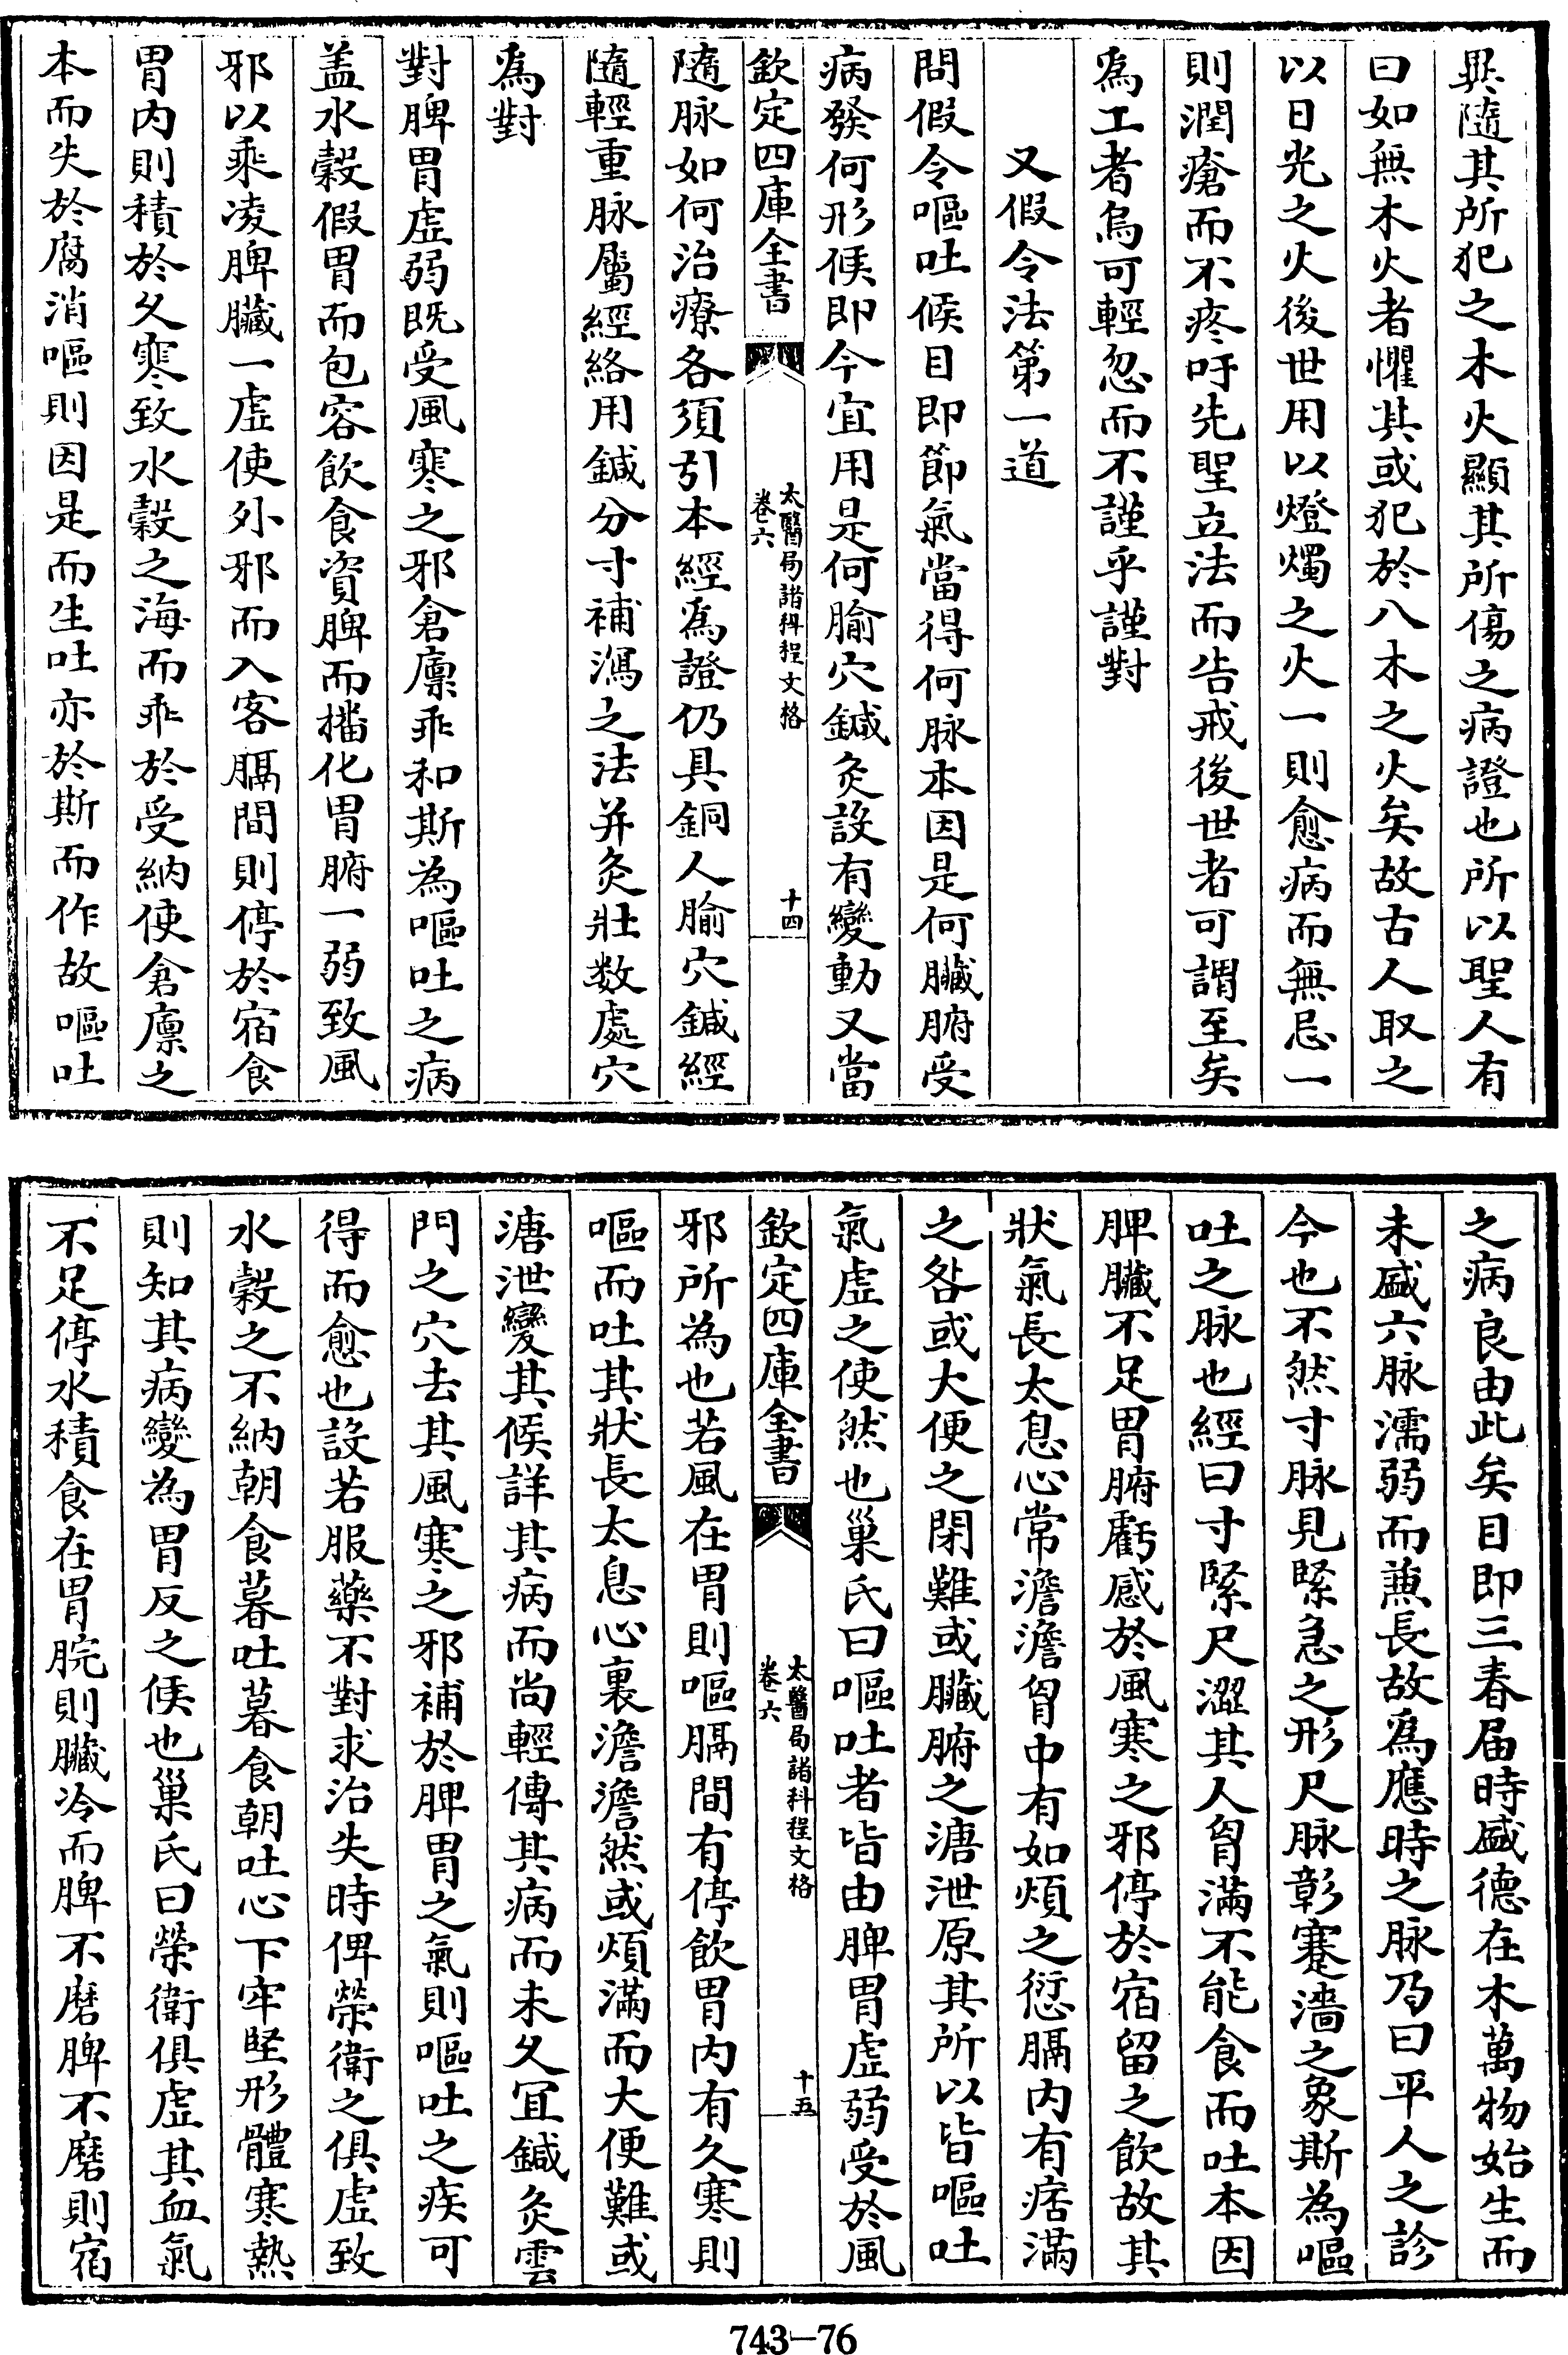 異隨其所犯之木火顯其所傷之病證也所以聖人有
曰如無木火者懼其或犯於八木之火矣故古人取之
以日光之火後世用以燈燭之火一則愈病而無忌一
則潤瘡而不疼吁先聖立法而告戒後世者可謂至矣
爲工者烏可輕忽而不謹乎謹對
又假令法第一道
問假令嘔吐候目即節氣當得何脉本因是何臟腑受
病發何形候即今宜用是何腧穴鍼灸設有變動又當
欽定四庫全書
太醫局諸科程文格
卷六
十四
隨脉如何治療各須引本經爲證仍具銅人腧穴鍼經
隨輕重脉屬經絡用鍼分寸補瀉之法并灸壯数處穴
爲對
對脾胃虚弱既受風寒之邪倉廪乖和斯為嘔吐之病
盖水糓假胃而包容飲食資脾而㨫化胃腑一弱致風
邪以乘凌脾臟一虚使外邪而入客膈間則停於宿食
胃内則積於乆寒致水糓之海而乖於受納使倉廪之
本而失於腐消嘔則因是而生吐亦於斯而作故嘔吐
之病良由此矣目即三春届時盛德在木萬物始生而
未盛六脉濡弱而兼長故爲應時之脉乃曰平人之診
今也不然寸脉見緊急之形尺脉彰蹇濇之象斯為嘔
吐之脉也經曰寸緊尺澀其人胷滿不能食而吐本因
脾臟不足胃腑虧感於風寒之邪停於宿留之飲故其
狀氣長太息心常澹澹胷中有如煩之愆膈内有痞滿
之咎或大便之閉難或臟腑之溏泄原其所以皆嘔吐
氣虚之使然也巢氏曰嘔吐者皆由脾胃虚弱受於風
欽定四庫全書
太醫局諸科程文格
卷六
十五
邪所為也若風在胃則嘔膈間有停飲胃内有久寒則
嘔而吐其狀長太息心裏澹澹然或煩滿而大便難或
溏泄變其候詳其病而尚輕傳其病而未乆冝鍼灸雲
門之穴去其風寒之邪補於脾胃之氣則嘔吐之疾可
得而愈也設若服藥不對求治失時俾榮衛之俱虚致
水糓之不納朝食暮吐暮食朝吐心下牢堅形體寒熱
則知其病變為胃反之候也巢氏曰榮衛俱虚其血氣
不足停水積食在胃脘則臟冷而脾不磨脾不磨則宿
743—76